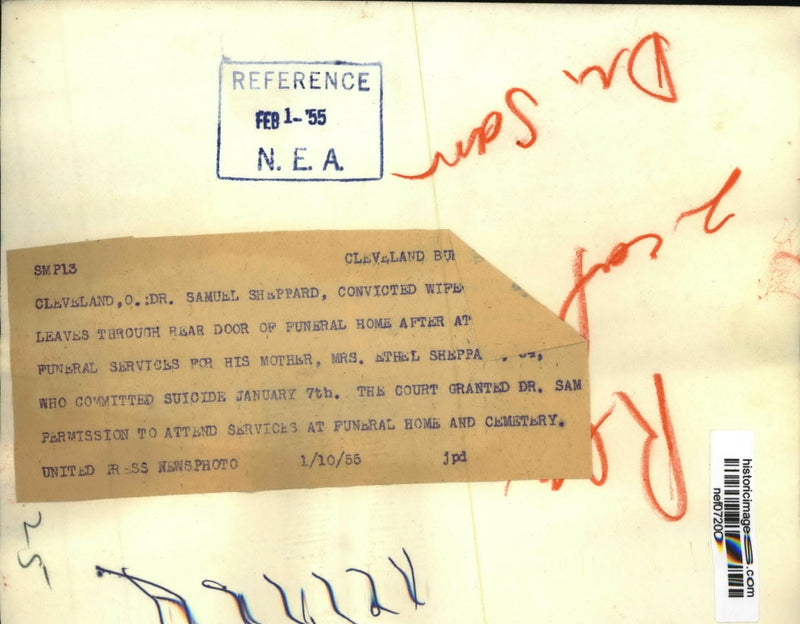 REFERENCE
FEB 1-'55
N. E. A.
Dr. Sam
SMP13 CLEVELAND BU
CLEVELAND,O.:DR. SAMUEL SHEPPARD, CONVICTED WIFE
LEAVES THROUGH REAR DOOR OF FUNERAL HOME AFTER AT
FUNERAL SERVICES FOR HIS MOTHER, MRS. ETHEL SHEPPA
WHO COMMITTED SUICIDE JANUARY 7th. THE COURT GRANTED DR. SAM
PERMISSION TO ATTEND SERVICES AT FUNERAL HOME AND CEMETERY.
UNITED PRESS NEWSPHOTO 1/10/55 jpd
25
historicimages.com
nef07200